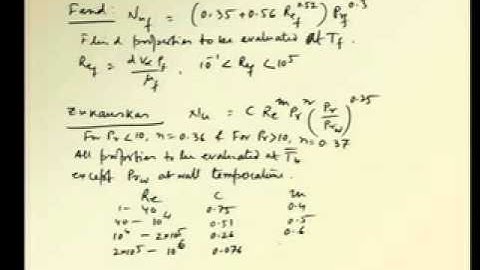 Fand: Nu_f = (0.35 + 0.56 Re_f^0.52) Pr_f^0.3
Fluid properties to be evaluated at T_f.
Re_f = d V∞ ρ_f / μ_f, 10^-1 < Re_f < 10^5
Zukauskas Nu = C Re^m Pr^n (Pr/Pr_w)^0.25
For Pr < 10, n = 0.36 & For Pr > 10, n = 0.37
All properties to be evaluated at T̄_b
except Pr_w at wall temperature.
Re C m
1 - 40 0.75 0.4
40 - 10^4 0.51 0.5
10^4 - 2×10^5 0.26 0.6
2×10^5 - 10^6 0.076